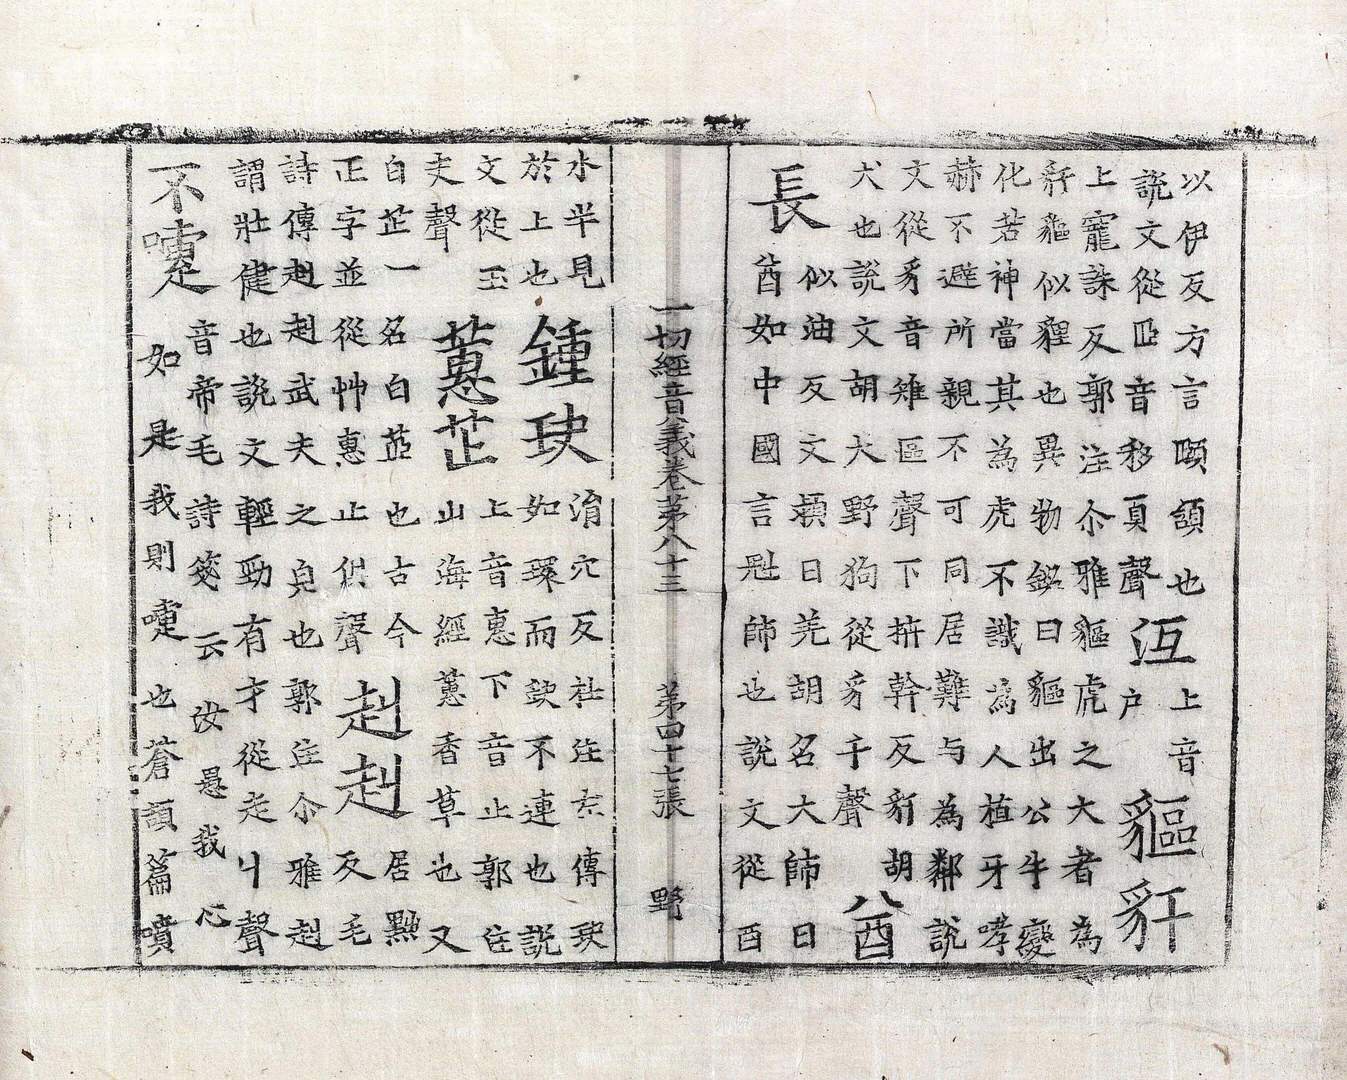 以伊反方言頤頷也
說文從𦣞音移頁聲
沍
上音
户
貙豻
上寵誅反郭注尒雅貙虎之大者為
豻貙似貍也異物銘曰貙出公牛變
化若神當其為虎不識為人植牙哮
赫不避所親不可同居難与為鄰說
文從豸音雉區聲下拚幹反豻胡
犬也說文胡犬野狗從豸干聲
酋
長
似油反文穎曰羌胡名大師曰
酋如中國言魁師也說文從酉
一切經音義卷第八十三 第四十七張 野
水半見
於上也
鍾玦
消穴反杜注左傳玦
如環而缺不連也說
文從玉
夬聲
蕙芷
上音惠下音止郭注
山海經蕙香草也又
白芷一名白茝也古今
正字並從艸惠止皆聲
赳赳
居黝
反毛
詩傳赳赳武夫之皃也郭注尒雅赳
謂壯健也說文輕勁有才從走丩聲
不嚏
音帝毛詩箋云汝思我心
如是我則嚏也蒼頡篇噴